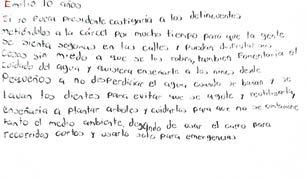 Emilio 10 años
Si yo fuera presidente castigaria a los delincuentes
metiéndolos a la cárcel por mucho tiempo para que la gente
se sienta segura en las calles y puedan disfrutar sus
cosas sin miedo a que se las roben, tambien fomentaria el
cuidado del agua y quisiera enseñarle a los niños desde
pequeños a no desperdiciar el agua, cuando se bañan y se
lavan los dientes para evitar que se agote y reutilizarla,
enseñaria a plantar arboles y cuidarlos para que no se contamine
tanto el medio ambiente, dejando de usar el carro para
recorridos cortos y usarlo solo para emergencias